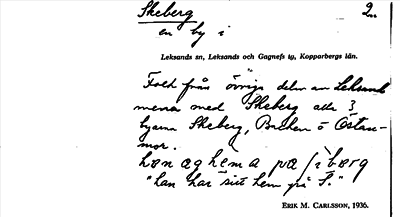 Skeberg 2
en by i
Leksands sn, Leksands och Gagnefs tg, Kopparbergs län.
Folk från övriga delar av Leksand
menar med Skeberg alla 3
byarna Skeberg, Backen o Östan-
mor.
han ag hem a pa
"han har sitt hem på S."
ERIK M. CARLSSON, 1936.